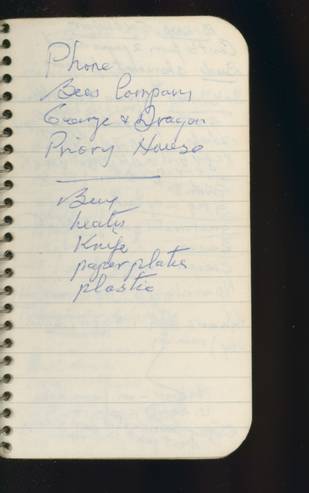 Phone
Bees Company
George & Dragon
Priory House
Buy
heater
Knife
paper plates
plastic